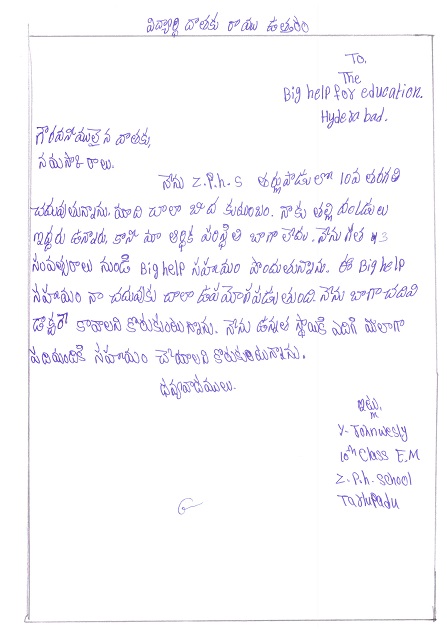 విద్యార్థి దాతకు రాయు ఉత్తరం
To,
The
Big help for education.
Hyderabad.
గౌరవనీయులైన దాతకు,
నమస్కారాలు.
నేను Z.P.h.S తర్లుపాడులో 10వ తరగతి
చదువుతున్నాను. మాది చాలా బీద కుటుంబం. నాకు తల్లి దండ్రులు
ఇద్దరు ఉన్నారు, కానీ మా ఆర్థిక పరిస్థితి బాగా లేదు. నేను గత 3
సంవత్సరాలు నుండి Big help సహాయం పొందుతున్నాను. ఈ Big help
సహాయం నా చదువుకు చాలా ఉపయోగపడుతుంది. నేను బాగా చదివి
డాక్టర్ కావాలని కోరుకుంటున్నాను. నేను ఉన్నత స్థాయికి ఎదిగి మీలాగా
పదిమందికి సహాయం చేయాలని కోరుకుంటున్నాను.
ధన్యవాదములు.
ఇట్లు
Y. Johnwesly
10th Class E.M
Z.P.h. School
Tarlupadu